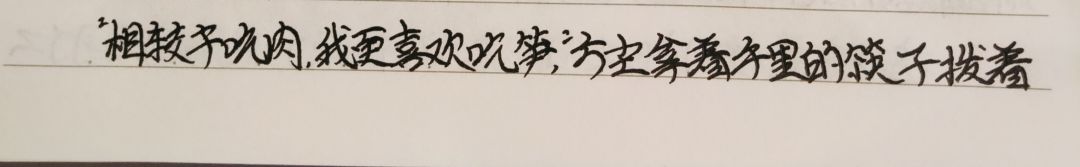 “相较于吃肉，我更喜欢吃笋，”方宝拿着手里的筷子拨着